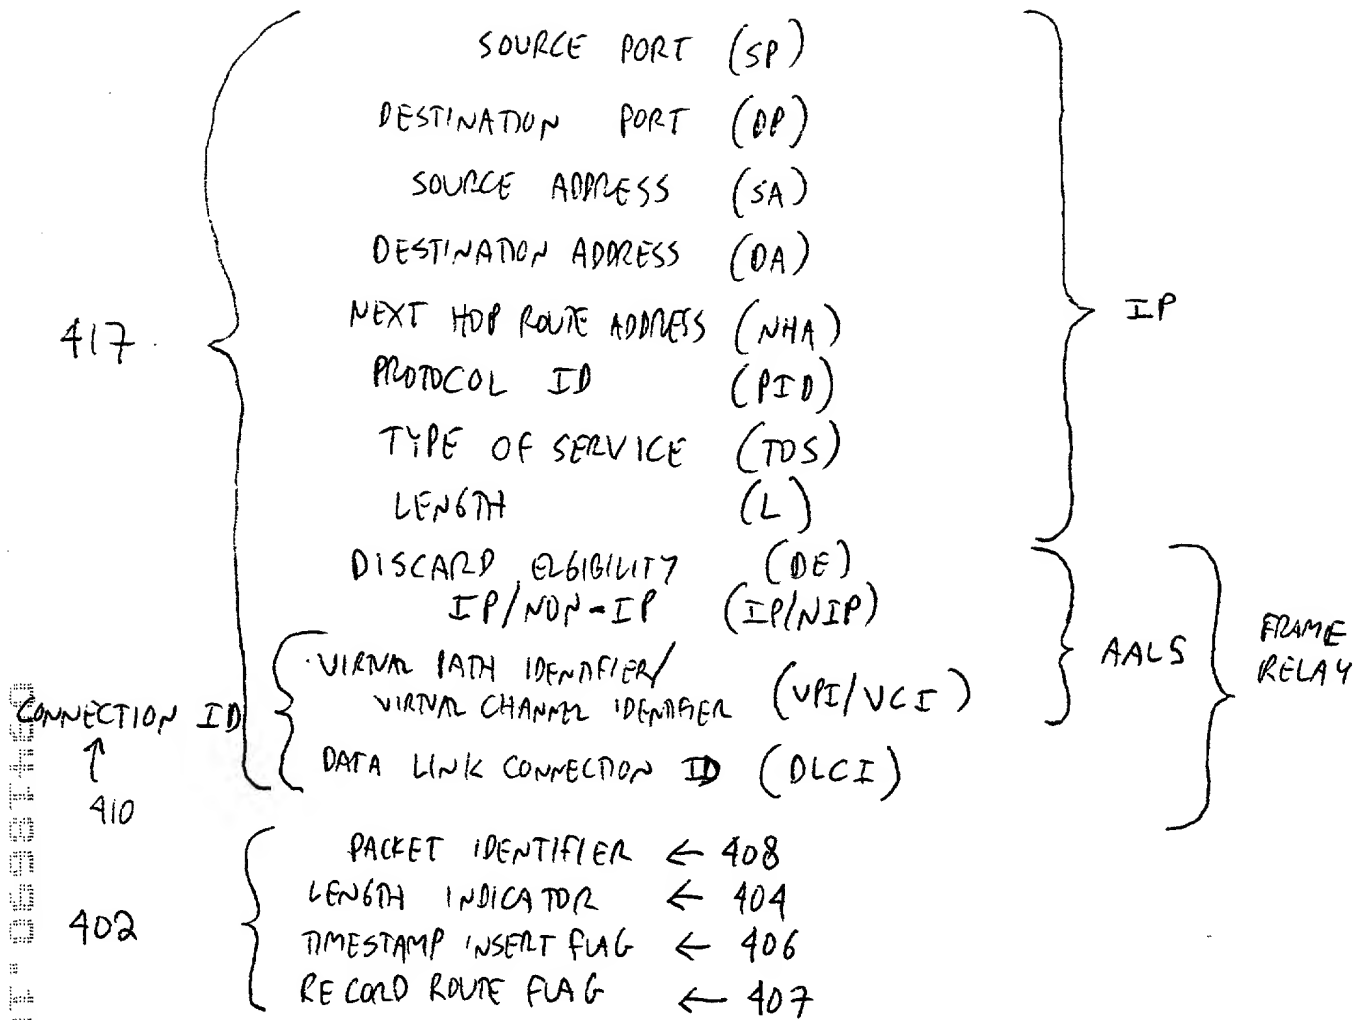 SOURCE PORT (SP)
DESTINATION PORT (DP)
SOURCE ADDRESS (SA)
DESTINATION ADDRESS (DA)
NEXT HOP ROUTE ADDRESS (NHA)
417
IP
PROTOCOL ID (PID)
TYPE OF SERVICE (TOS)
LENGTH (L)
DISCARD ELGIBILITY (DE)
IP/NON-IP (IP/NIP)
VIRTUAL PATH IDENTIFIER/
VIRTUAL CHANNEL IDENTIFIER (VPI/VCI)
AAL5
FRAME
RELAY
CONNECTION ID
410
DATA LINK CONNECTION ID (DLCI)
PACKET IDENTIFIER ← 408
LENGTH INDICATOR ← 404
402
TIMESTAMP INSERT FLAG ← 406
RECORD ROUTE FLAG ← 407